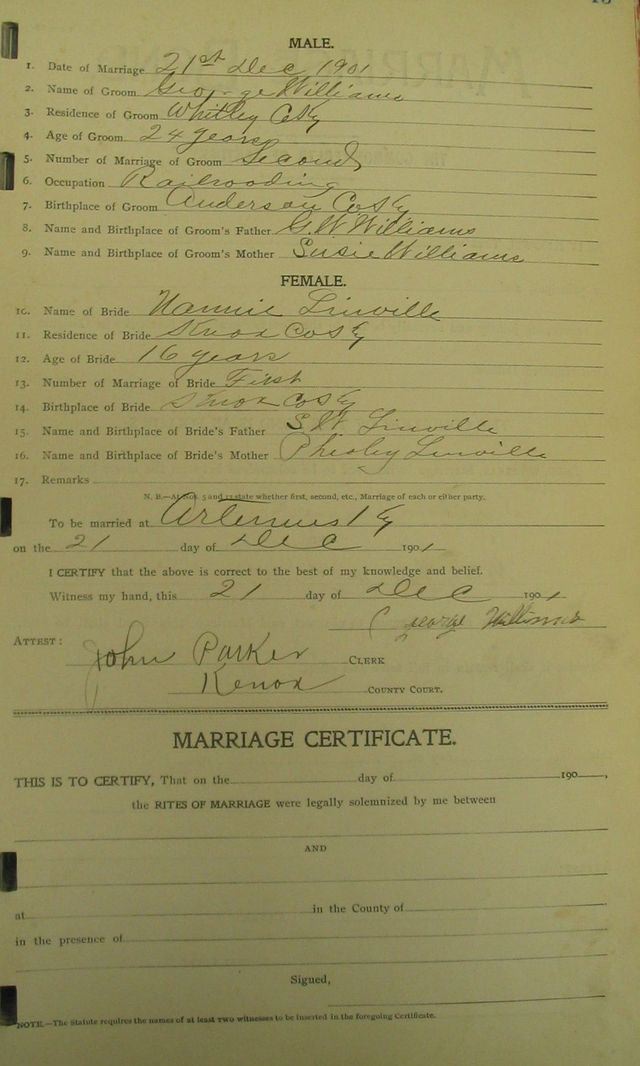 MALE.
1. Date of Marriage 21st Dec 1901
2. Name of Groom George Williams
3. Residence of Groom Whitley Co Ky
4. Age of Groom 24 years
5. Number of Marriage of Groom Second
6. Occupation Railroading
7. Birthplace of Groom Anderson Co Ky
8. Name and Birthplace of Groom's Father G. W Williams
9. Name and Birthplace of Groom's Mother Susie Williams
FEMALE.
10. Name of Bride Nannie Linville
11. Residence of Bride Knox Co Ky
12. Age of Bride 16 years
13. Number of Marriage of Bride First
14. Birthplace of Bride Knox Co Ky
15. Name and Birthplace of Bride's Father S. W Linville
16. Name and Birthplace of Bride's Mother Linville
17. Remarks
N. B.—At Nos. 5 and 13 state whether first, second, etc., Marriage of each or either party.
To be married at Artemus Ky
on the 21 day of Dec 1901
I CERTIFY that the above is correct to the best of my knowledge and belief.
Witness my hand, this 21 day of Dec 1901
George Williams
ATTEST:
John Parker CLERK
Kenox COUNTY COURT.
MARRIAGE CERTIFICATE.
THIS IS TO CERTIFY, That on the day of 190 ,
the RITES OF MARRIAGE were legally solemnized by me between
AND
at in the County of
in the presence of
Signed,
NOTE.—The Statute requires the names of at least two witnesses to be inserted in the foregoing Certificate.